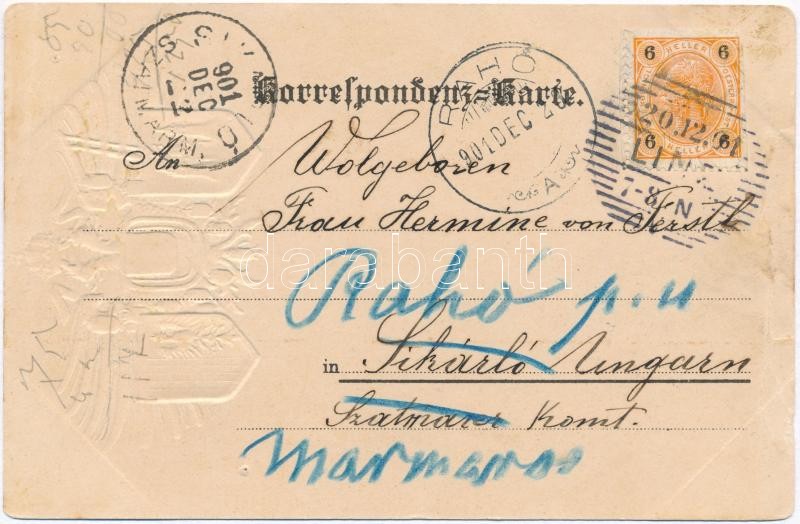 Korrespondenz-Karte.
6 HELLER 6
6 6
20.12.
LINZ
7-8 N
RAHO
901 DEC 2
901
DEC
An Wolgeboren
Frau Hermine von Ferstl
Rahó p. u
in Sikárló Ungarn
Szatmarer Komt.
Marmaros
darabanth